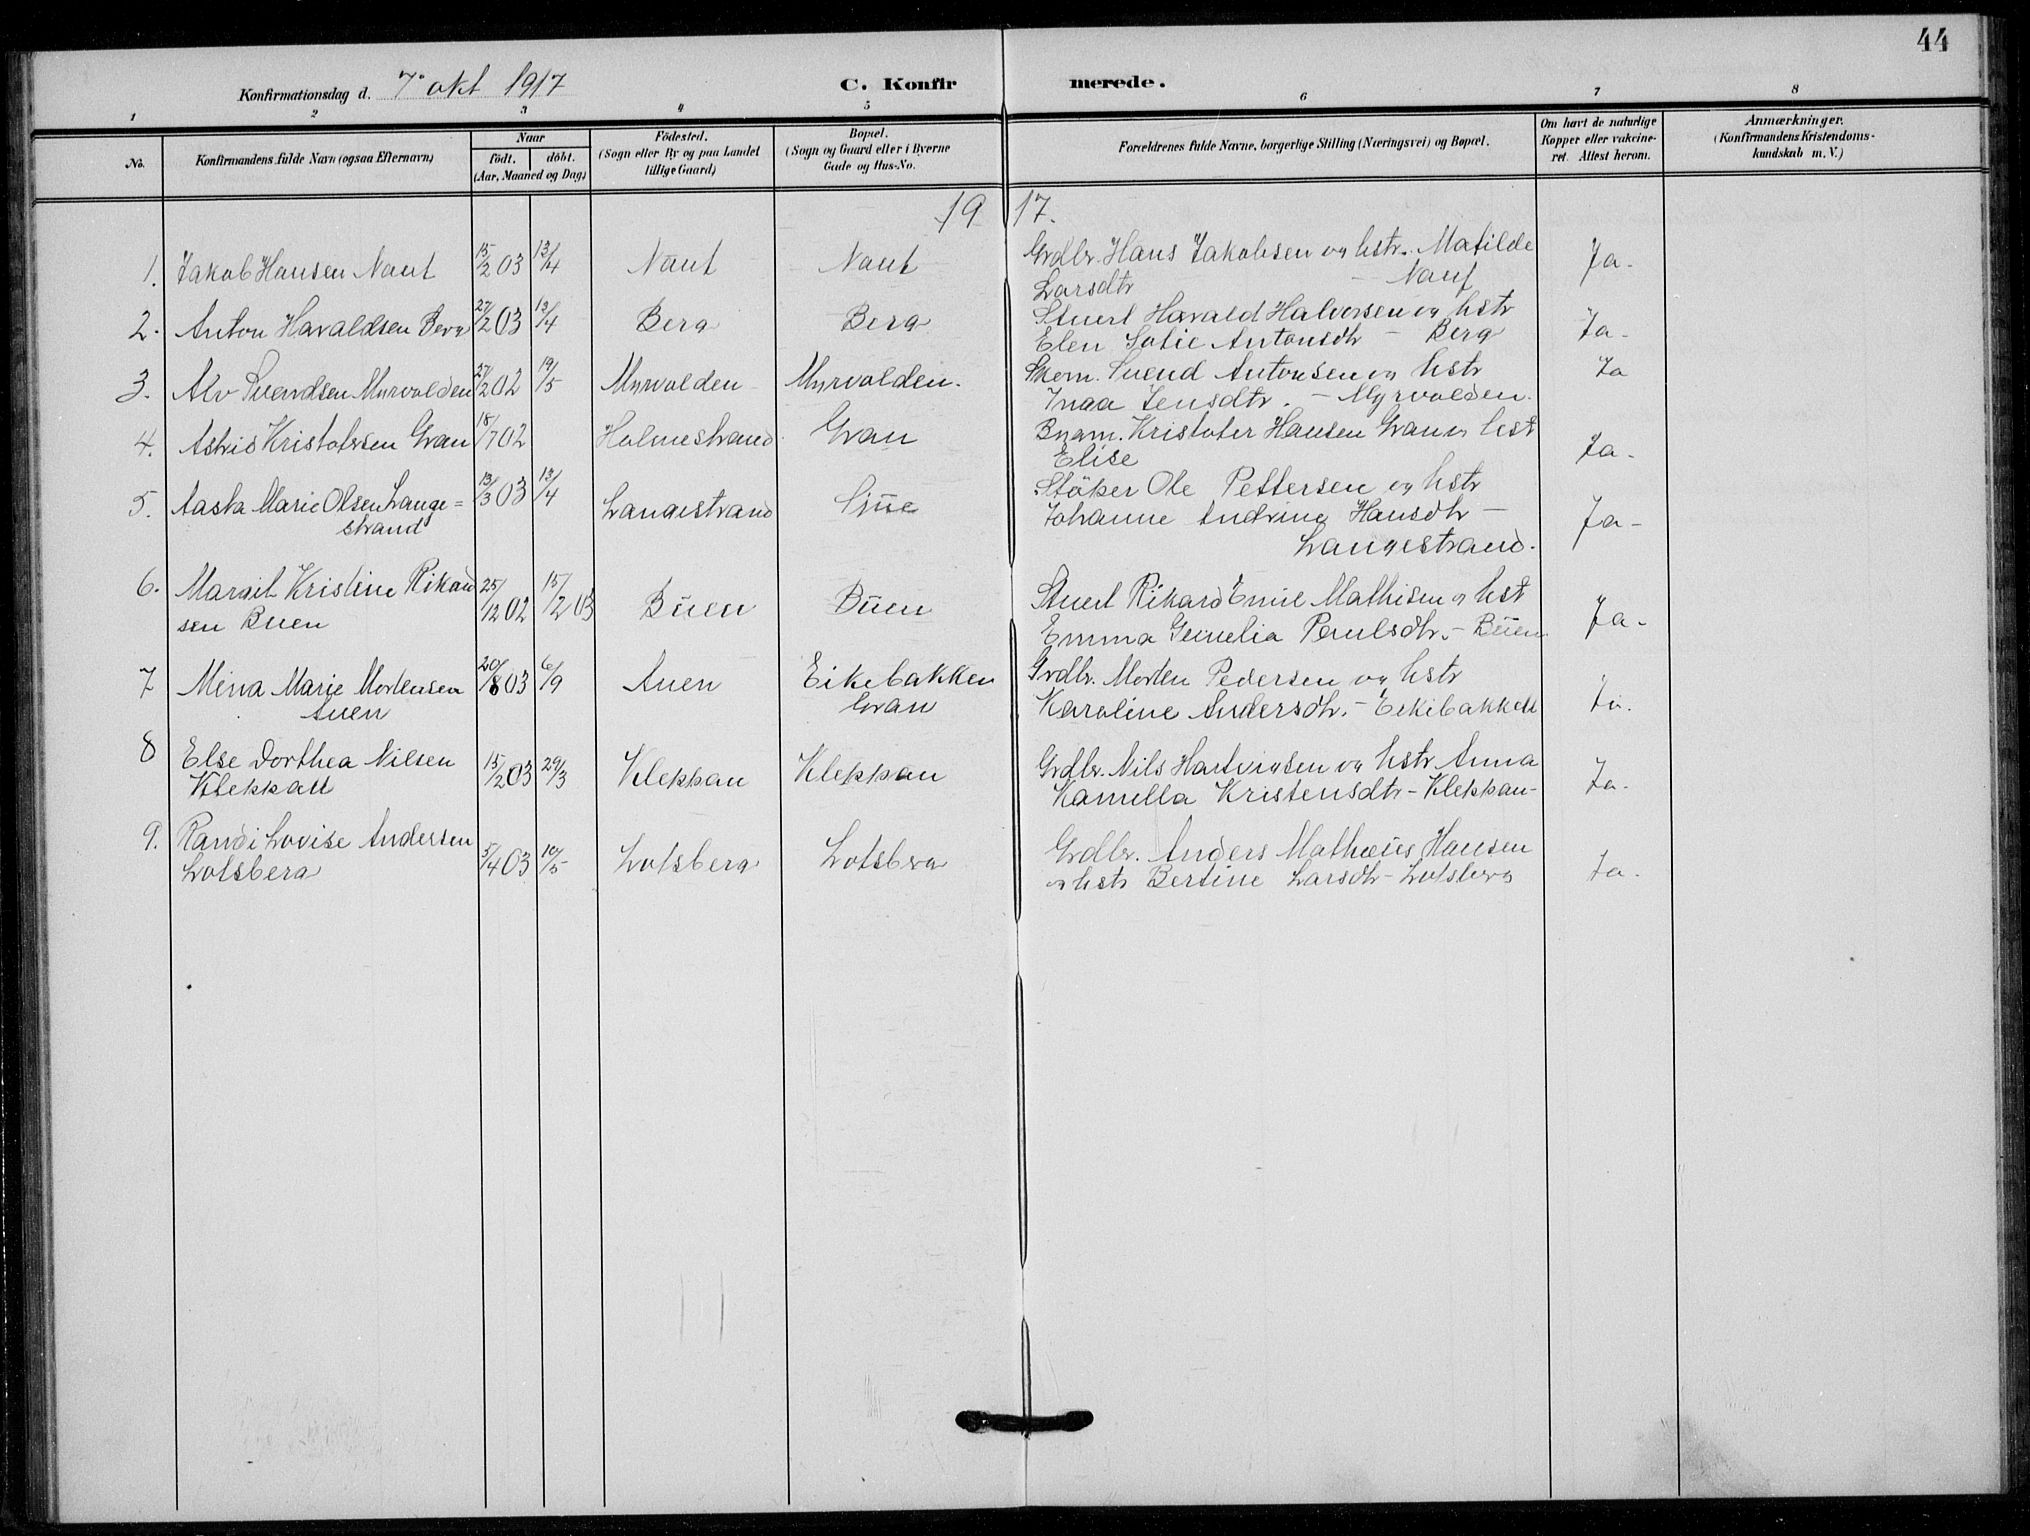 44
Konfirmationsdag d. 7 okt 1917
C. Konfirmerede.
1 2 3 4 5 6 7 8
No.
Konfirmandens fulde Navn (ogsaa Efternavn)
Naar
födt. döbt.
(Aar, Maaned og Dag)
Födested.
(Sogn eller By og paa Landet
tillige Gaard)
Bopæl.
(Sogn og Gaard eller i Byerne
Gade og Hus-No.
Forældrenes fulde Navne, borgerlige Stilling (Næringsvei) og Bopæl.
Om havt de naturlige
Kopper eller vakcine-
ret. Attest herom.
Anmærkninger.
(Konfirmandens Kristendoms-
kundskab m. V.)
1917.
1. Jakob Hansen Nauf 15/2 03 13/4 Nauf Nauf Grdbr. Hans Jakobsen og hstr. Matilde Ja-
Larsdtr - Nauf
2. Anton Haraldsen Berg 27/2 03 13/4 Berg Berg Stuert Harald Halvorsen og hstr
Elen Sofie Antonsdtr - Berg Ja-
3. Alv Svendsen Myrvolden 27/2 02 19/5 Myrvolden Myrvolden. Skom. Svend Antonsen og hstr Ja
Inga Jensdtr. - Myrvolden.
4. Astrid Kristofersen Gran 18/7 02 Holmestrand Gran Bygm. Kristofer Hansen Gran og hst
Elise Ja-
5. Aasta Marie Olsen Lange= 13/3 03 13/4 Langestrand Støper Ole Pettersen og hstr
strand Johanne Andrine Hansdtr - Ja-
Langestrand.
6. Margit Kristine Rikard 25/12 02 15/2 03 Buen Buen Stuert Rikard Emil Mathisen og hst
sen Buen Emma Paulsdtr. - Buen Ja-
7 Mina Marie Mortensen 20/8 03 6/9 Auen Eikebakken Grdbr. Morten Pedersen og hstr
Auen Gran Karoline Andersdtr. - Eikebakken Ja.
8 Else Dorthea Nilsen 15/2 03 29/3 Kleppan Kleppan Grdbr. Nils Hartvigsen og hstr Anna
Kleppan Kamilla Kristensdtr - Kleppan - Ja.
9. Randi Lovise Andersen 5/4 03 10/5 Lotsberg Lotsberg Grdbr. Anders Mathæus Hansen
Lotsberg og hstr Bertine Larsdtr - Lotsberg Ja.